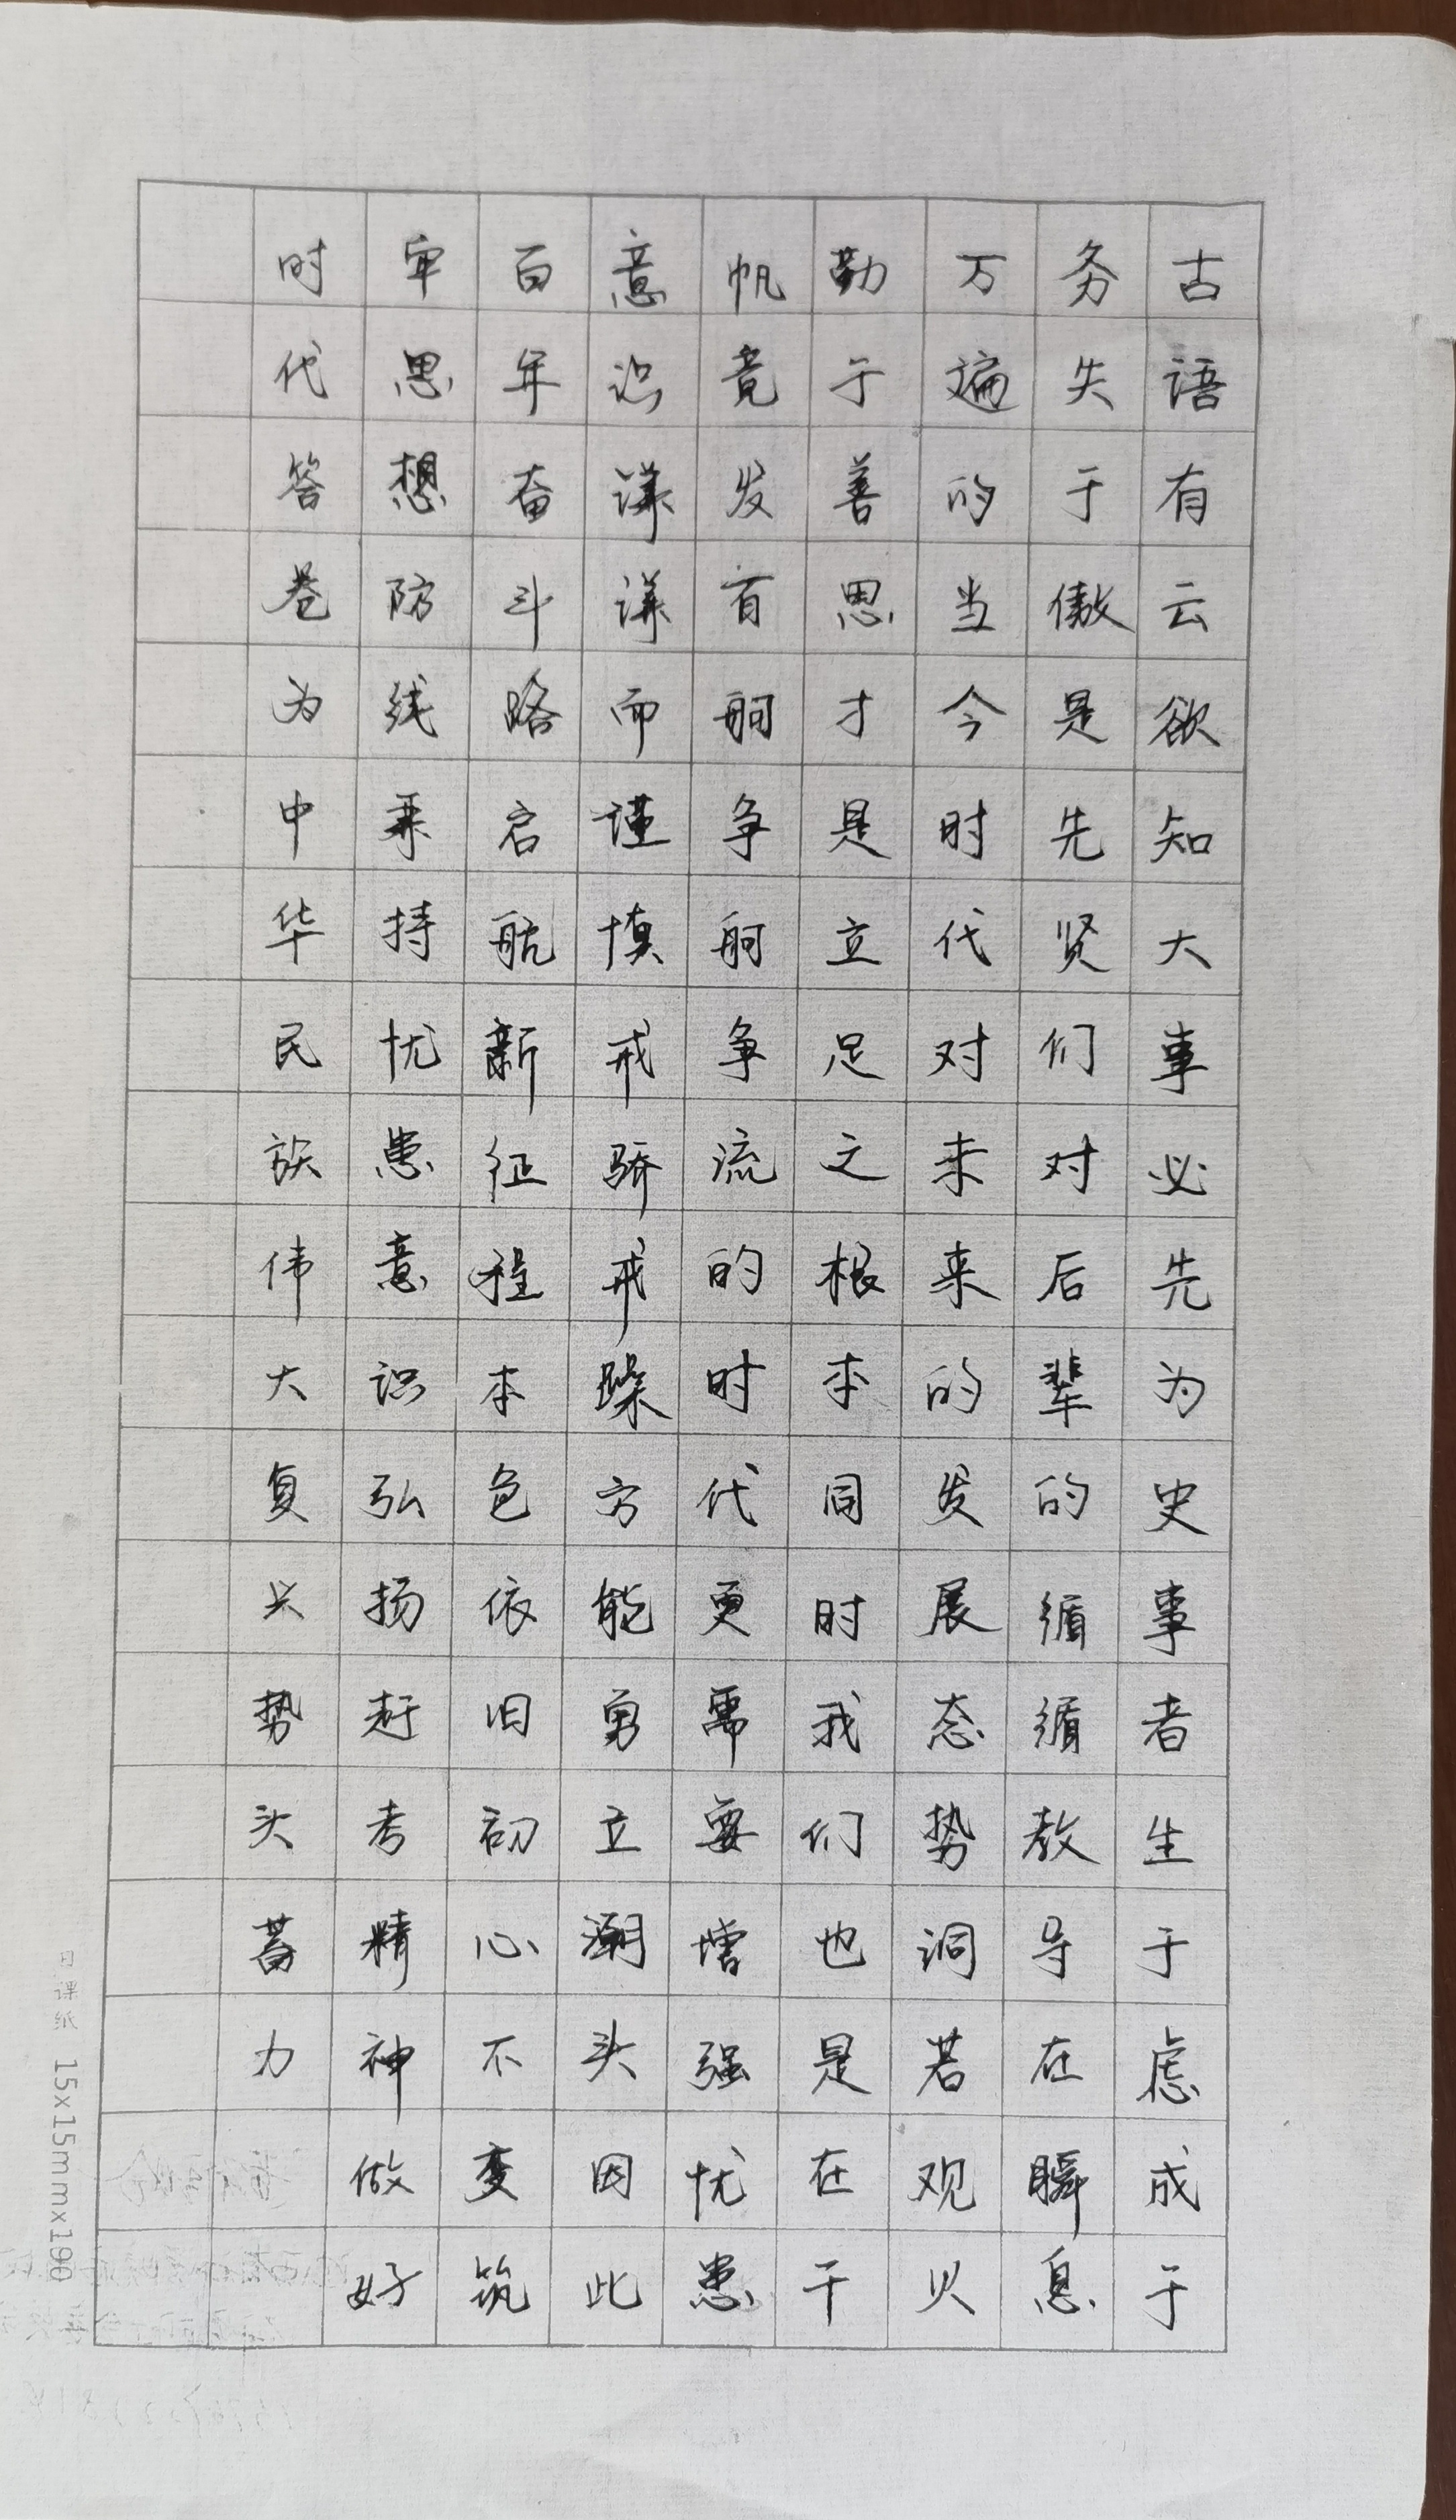 古语有云欲知大事必先为史事者生于虑成于
务失于傲是先贤们对后辈的循循教导在瞬息
万遍的当今时代对未来的发展态势洞若观贝
勤于善思才是立足之根本同时我们也是在干
帆竟发百舸争舸争流的时代更需要增强忧患
意识谦谦而谨慎戒骄戒躁方能勇立潮头因此
百年奋斗路启航新征程本色依旧初心不变筑
牢思想防线秉持忧患意识弘扬赶考精神做好
时代答卷为中华民族伟大复兴势头蓄力
日课纸 15x15mmx190